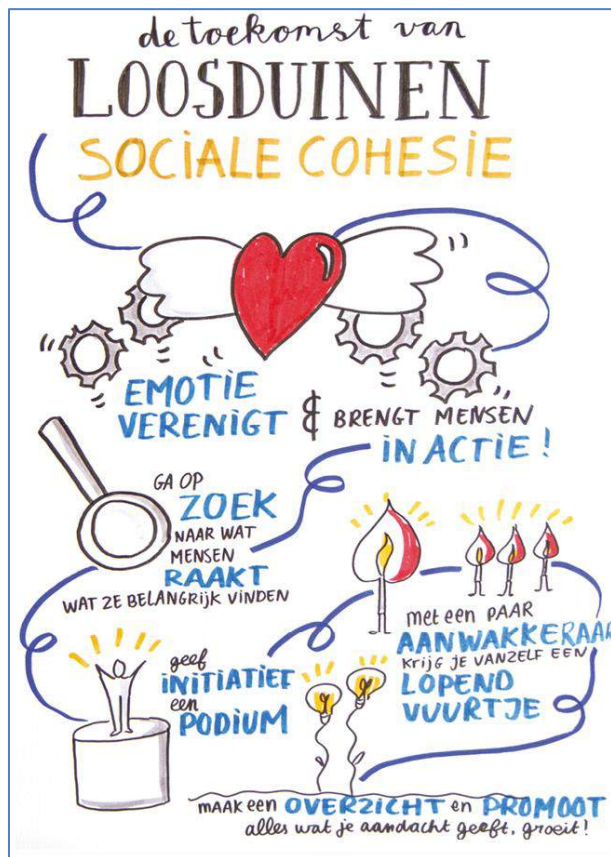 de toekomst van
LOOSDUINEN
SOCIALE COHESIE
EMOTIE
VERENIGT & BRENGT MENSEN
IN ACTIE!
GA OP
ZOEK
NAAR WAT
MENSEN
RAAKT
WAT ZE BELANGRIJK VINDEN
met een PAAR
AANWAKKERAAR
KRIJG JE VANZELF EEN
LOPEND
VUURTJE
geef
INITIATIEF
een
PODIUM
MAAK EEN OVERZICHT en PROMOOT
alles wat je aandacht geeft, groeit!